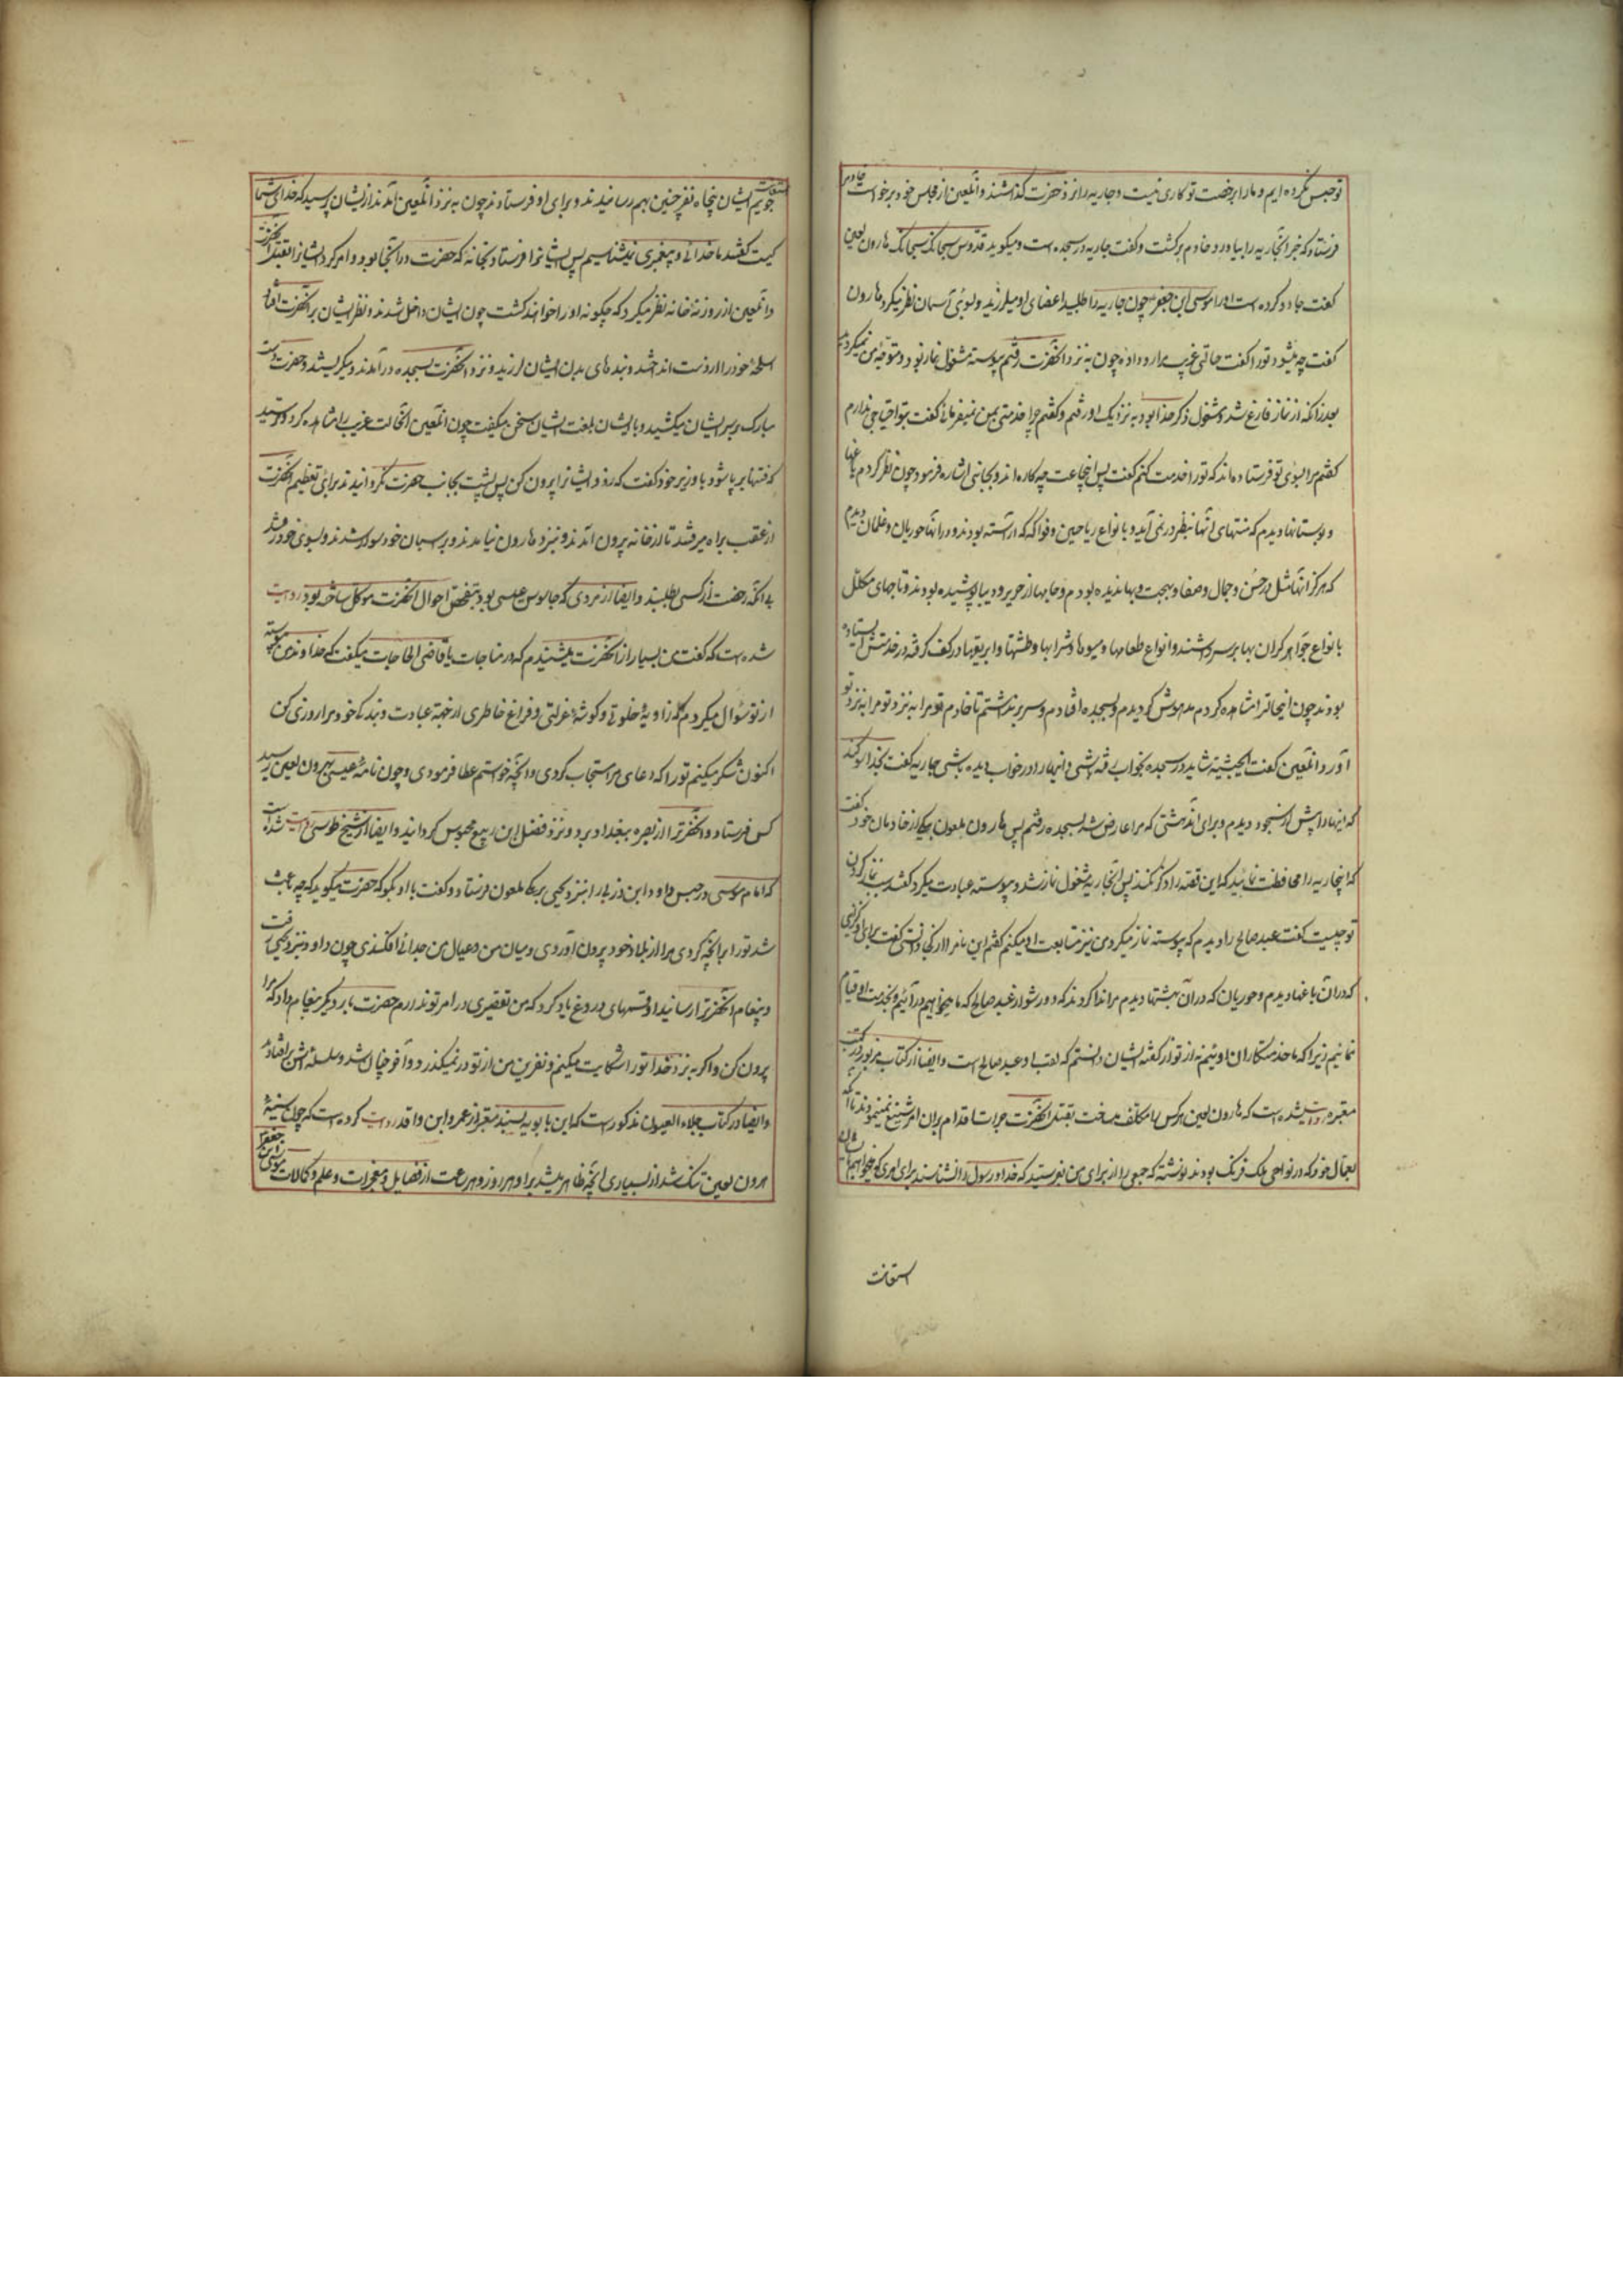 تو حبس نکرده ایم و ما را برخصت تو کاری نیست و جاریه را نزد حضرت گذاشتند و آنلعین از مجلس خود برخواست خادم را
فرستاد که خبر آنجاریه را بیاورد خادم برگشت و گفت جاریه در سجده است و میگوید قدوس سبحانک سبحانک هارون لعین
گفت جادو کرده است او را موسی ابن جعفر چون جاریه را طلبید اعضای او میلرزید و بسوی آسمان نظر میکرد هارون
گفت چه میشود تو را گفت حالتی غریب مرا رو داده چون به نزد آنحضرت رفتم پیوسته مشغول نماز بود و متوجه من نمیکردید
بعد از آنکه از نماز فارغ شد و مشغول ذکر خدا بود به نزدیک او رفتم و گفتم چرا خدمتی بمن نمیفرمائی گفت بتو احتیاجی ندارم
گفتم مرا بسوی تو فرستاده اند که تو را خدمت کنم گفت پس اینجماعت چه کاره اند و بجانبی اشاره فرمود چون نظر کردم باغها
و بوستانها دیدم که منتهای آنها بنظر در نمی آید و بانواع ریاحین و فواکه که آراسته بودند و در آنها حوریان و غلمان دیدم
که هرگز آنها مثل در حسن و جمال و صفا و بهجت و بها ندیده بودم و جامها از حریر و دیبا پوشیده بودند و تاجهای مکلل
بانواع جواهر گران بها بر سر داشتند و انواع طعامها و میوها و شرابها و طشتها و ابریقها در کف گرفته در خدمتش ایستاده
بودند چون اینحال را مشاهده کردم مدهوش گردیدم و بسجده افتادم و سر بر نداشتم تا خادم تو مرا به نزد تو
آورد آنلعین گفت ایخبیثه شاید در سجده بخواب رفته باشی و اینها را در خواب دیده باشی جاریه گفت بخدا سوگند
که اینها را پیش از سجود دیدم و برای آن دهشتی که مرا عارض شد بسجده رفتم پس هارون ملعون بیکی از خادمان خود گفت
که اینجاریه را محافظت نمائید که این قصه را ذکر نکند پس آنجاریه مشغول نماز شد و پیوسته عبادت میکرد گفتند سبب نماز کردن
تو چیست گفت عبد صالح را دیدم که پیوسته نماز میکرد من نیز متابعت او میکنم گفتم این نام را از کجا دانستی گفت
که در آن باغها دیدم و حوریان که در آن بهشتها دیدم مرا ندا کردند که دور شو از عبد صالح که ما میخواهیم در آئیم و بخدمت او قیام
نمائیم زیرا که ما خدمتکاران اوئیم نه تو از گفته ایشان دانستم که لقب او عبد صالح است و ایضا از کتاب مزبور در کتب
معتبره روایت شده است که هارون لعین هر کس را مکلف میساخت بقتل آنحضرت جرات اقدام بر آن امر شنیع نمینمودند تا آنکه
بعمال خود که در نواحی ملک فرنک بودند نوشته که جمعی را از برای من بفرستید که خدا و رسول را نشناسند برای امری که میخواهم بایشان
استعانت
جویم ایشان پنجاه نفر چنین بهم رسانیدند و برای او فرستادند چون به نزد آنلعین آمدند از ایشان پرسید که خدای شما
کیست گفتند ما خدائی و پیغمبری نمیشناسیم پس ایشانرا فرستاد بخانه که حضرت در آنجا بود و امر کرد ایشانرا بقتل آنحضرت
و آنلعین از روزنه خانه نظر میکرد که چگونه او را خواهند کشت چون ایشان داخل شدند و نظر ایشان بر آنحضرت افتاد
اسلحه خود را از دست انداختند و بندهای بدن ایشان لرزید و نزد آنحضرت بسجده در آمدند و میگریستند و حضرت دست
مبارک بر سر ایشان میکشید و با ایشان بلغت ایشان سخن میگفت چون آنلعین آنحالت غریب را مشاهده کرد و ترسید
که فتنها بر پا شود با وزیر خود گفت که زود ایشانرا بیرون کن پس پشت بجانب حضرت نگردانیدند برای تعظیم آنحضرت
از عقب براه میرفتند تا از خانه بیرون آمدند و بنزد هارون نیامدند و بر اسبان خود سوار شدند و بسوی خود رفتند
بی آنکه رخصت از کسی بطلبند و ایضا از مردی که جاسوس عیسی بود و بتفحص احوال آنحضرت موکل ساخته بود روایت
شده است که گفت من بسیار از آنحضرت میشنیدم که در مناجات با قاضی الحاجات میگفت که خداوندا من پیوسته
از تو سوال میکردم که زاویه خلوتی و گوشه عزلتی و فراغ خاطری از جهة عبادت و بندگی خود مرا روزی کن
اکنون شکر میکنم تو را که دعای مرا مستجاب کردی و آنچه خواستم عطا فرمودی و چون نامه عیسی بهرون لعین رسید
کس فرستاد و آنحضرترا از بصره ببغداد برد و نزد فضل ابن ربیع محبوس گردانید و ایضا از شیخ طوسی روایت شده است
که امام موسی در حبس داود ابن زربی را بنزد یحیی برمکی ملعون فرستاد و گفت با او بگو که حضرت میگوید که چه باعث
شد تو را بر آنچه کردی مرا از بلاد خود بیرون آوردی و میان من و عیال من جدائی افکندی چون داود بنزد یحیی رفت
و پیغام آنحضرترا رسانید او قسمهای دروغ یاد کرد که من تقصیری در امر تو ندارم حضرت بار دیگر پیغام داد که مرا
بیرون کن و اگر نه نزد خدا تو را شکایت میکنم و نفرین من از تو در نمیگذرد و آخر چنان شد و سلسله اش بر افتاد
و ایضا در کتاب جلاء العیون مذکور است که ابن بابویه بسند معتبر از عمر و ابن واقد روایت کرده است که چون سینه
هرون لعین تنگ شد از بسیاری آنچه ظاهر میشد بر او هر روز و هر ساعت از فضایل و معجزات و علم و کمالات موسی ابن جعفر